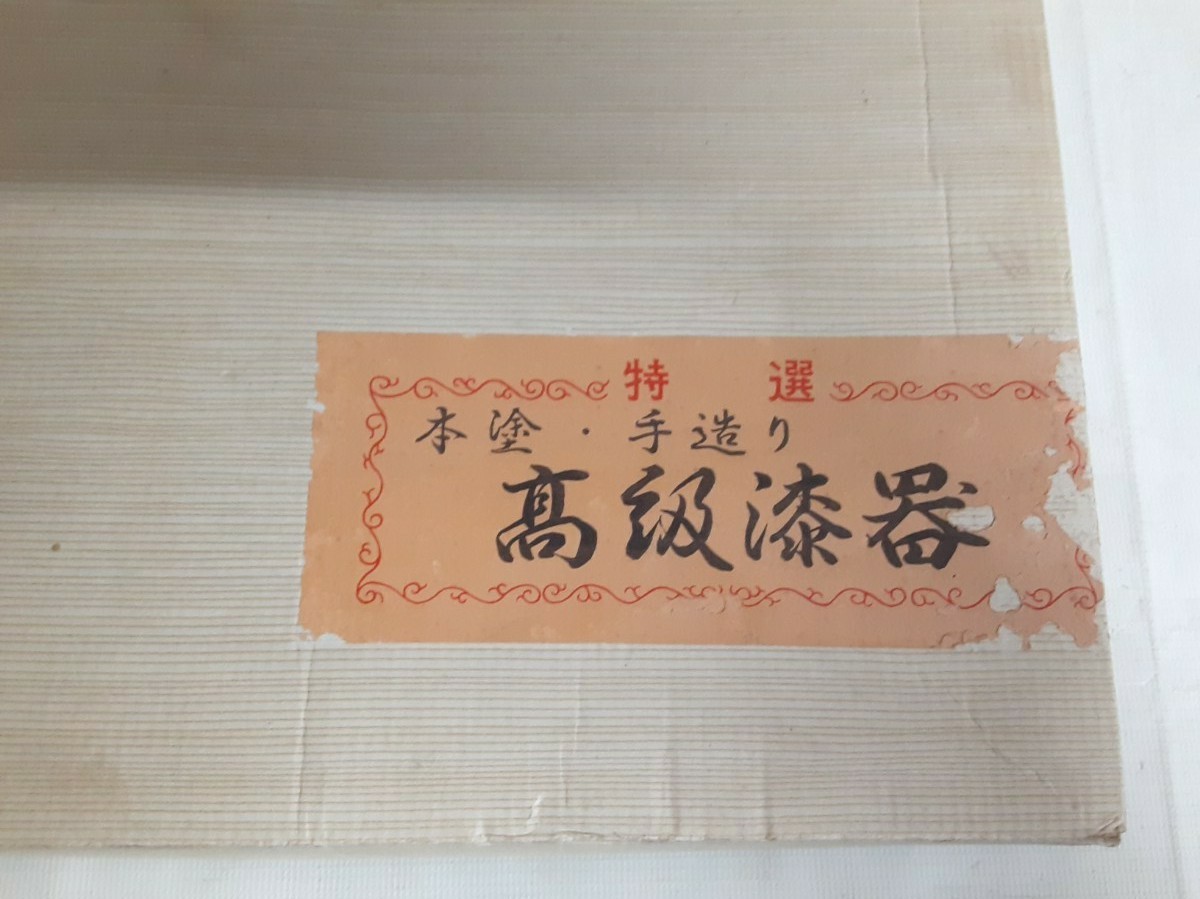 特選
本塗・手造り
髙級漆器